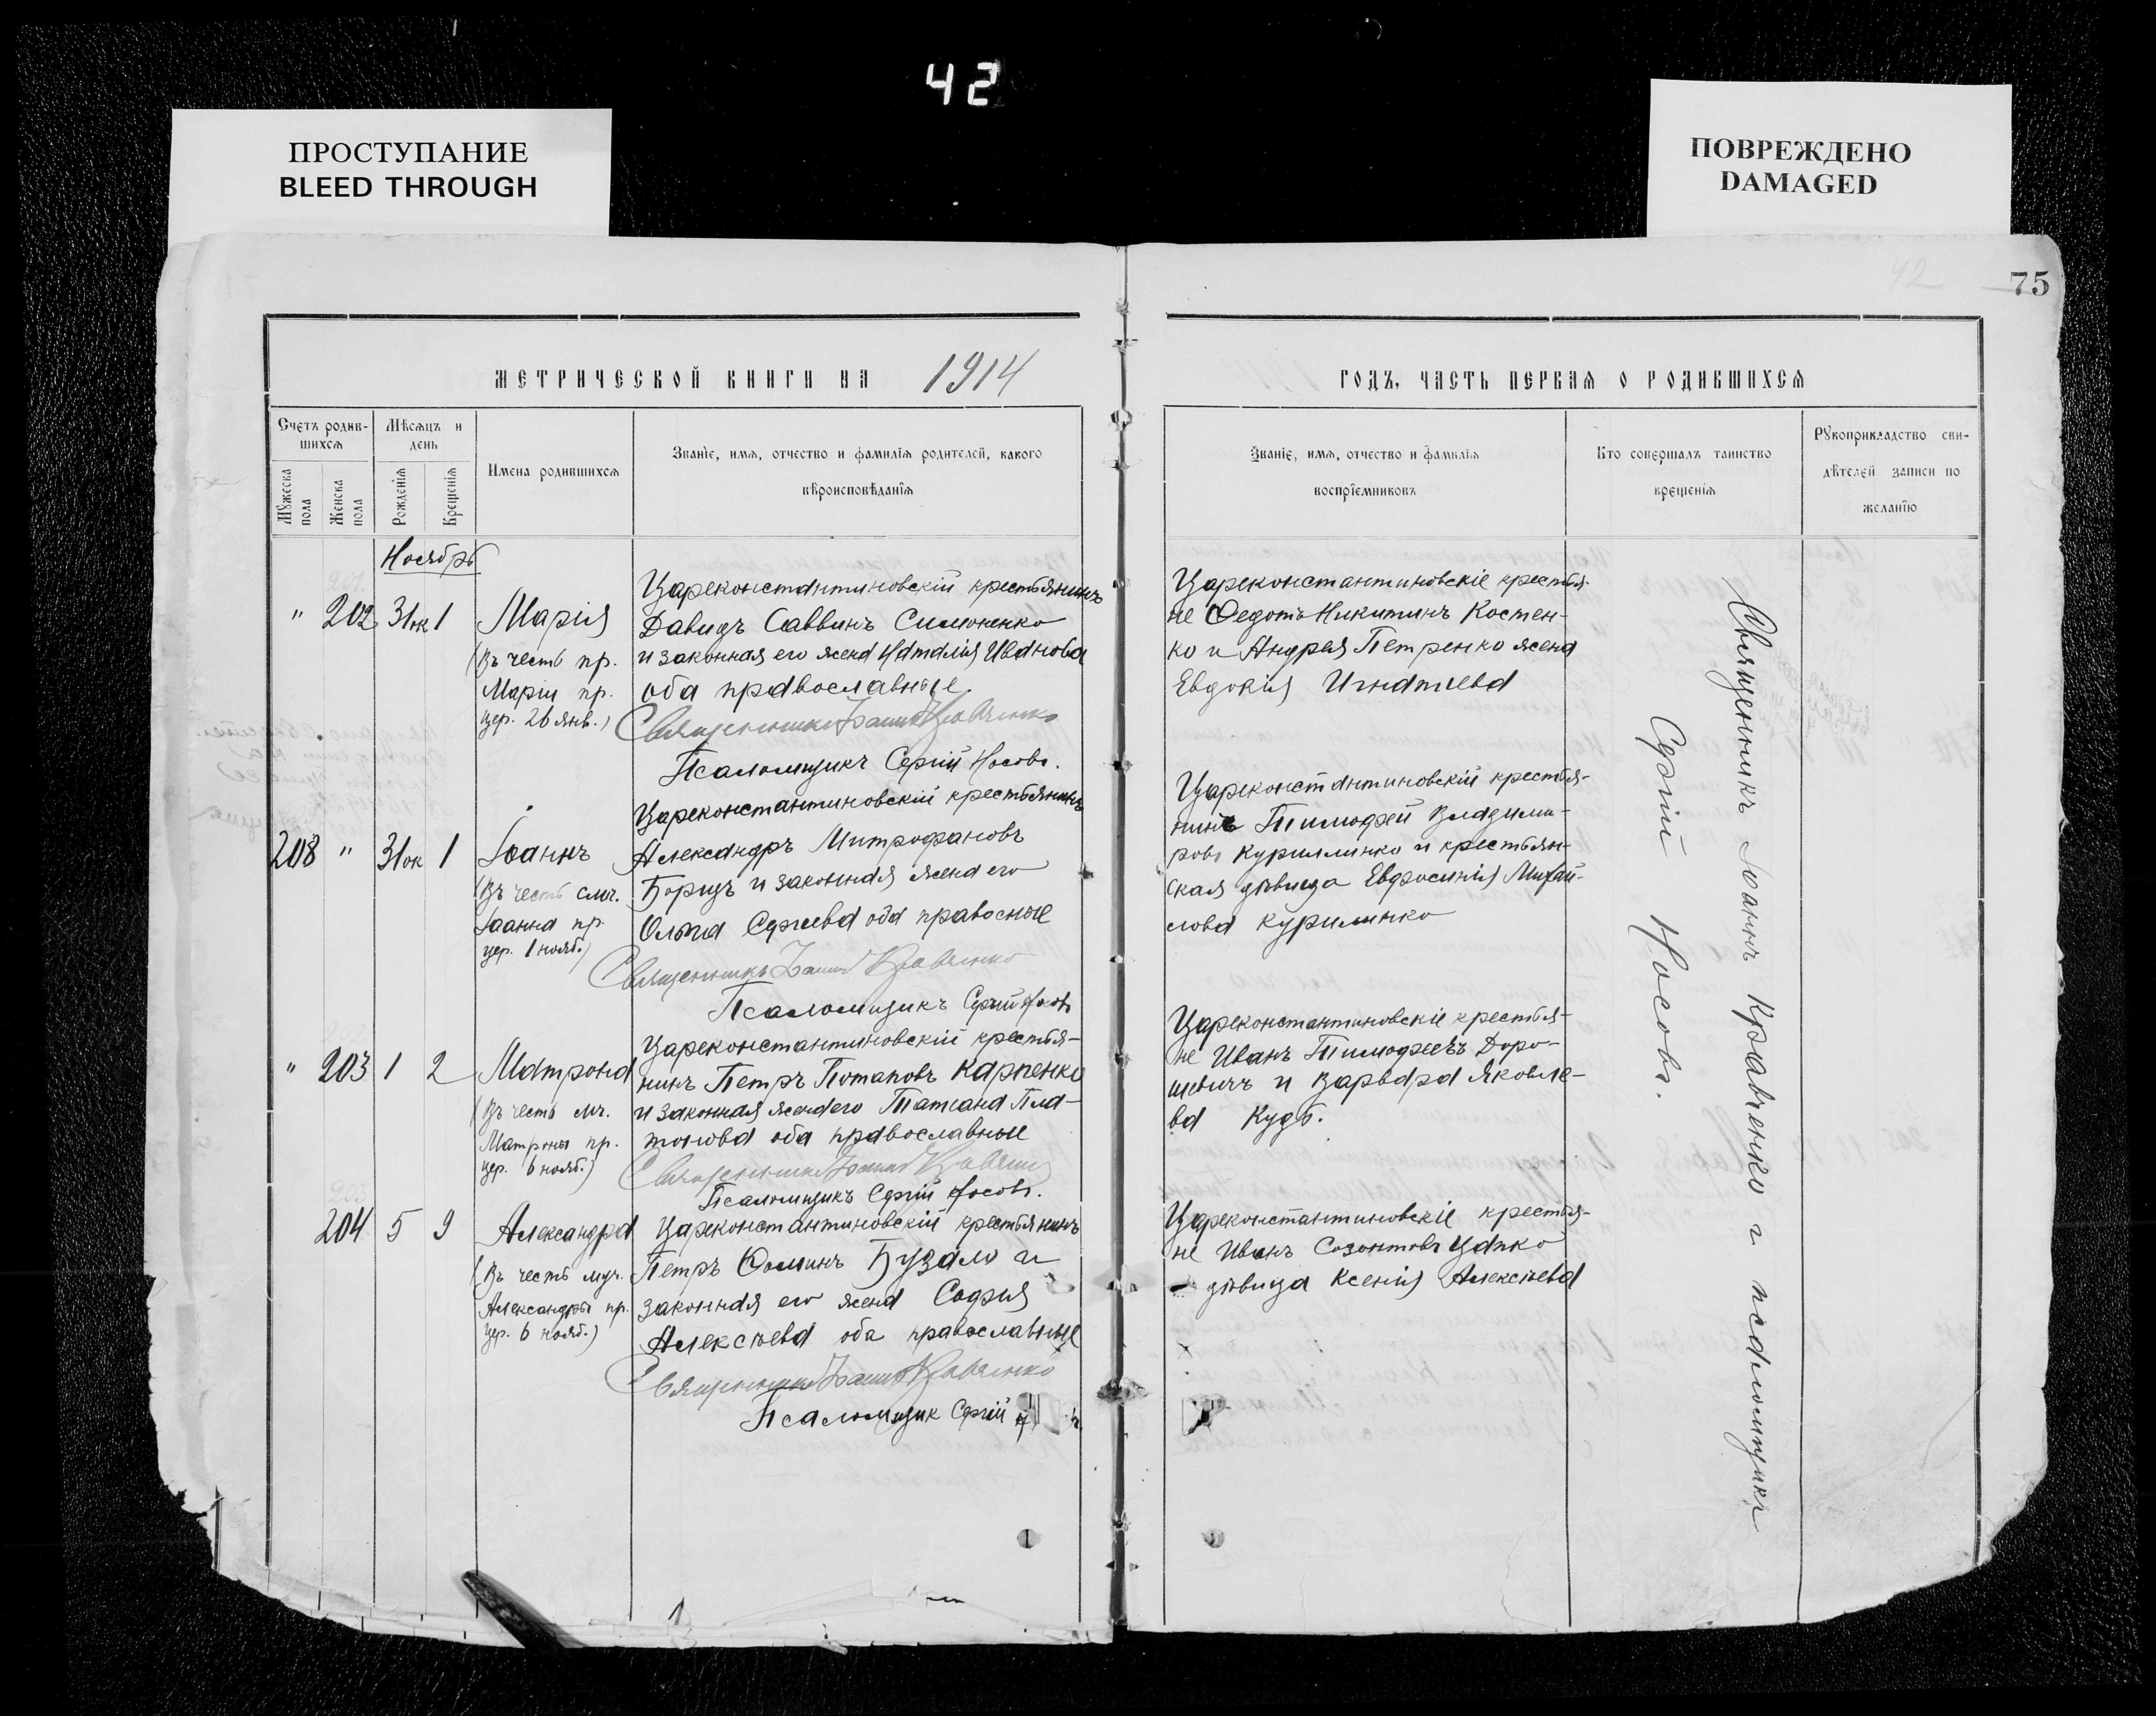 42
ПРОСТУПАНИЕ
BLEED THROUGH
ПОВРЕЖДЕНО
DAMAGED
42
75
МЕТРИЧЕСКОЙ КНИГИ НА 1914
ГОДЪ, ЧАСТЬ ПЕРВАЯ О РОДИВШИХСЯ
Счетъ родив-
шихся
Мужеска
пола
Женска
пола
Мѣсяцъ и
день
Рожденія
Крещенія
Имена родившихся
Званіе, имя, отчество и фамилія родителей, какого
вѣроисповѣданія
Званіе, имя, отчество и фамилія
воспріемниковъ
Кто совершалъ таинство
крещенія
Рукоприкладство сви-
дѣтелей записи по
желанію
Ноябрь
" 202 31 ок 1
Марія
(Въ честь пр.
Маріи пр.
цер. 26 янв.)
Цареконстантиновскій крестьянинъ
Давидъ Саввинъ Симоненко
и законная его жена Наталія Иванова
оба православные
Священникъ Іоаннъ Кравченко
Псаломщикъ Сергій Носовъ.
Цареконстантиновскіе крестья-
не Ѳедотъ Никитинъ Костен-
ко и Андрея Петренко жена
Евдокія Игнатиева
208 " 31 ок 1
Іоаннъ
(Въ честь смч.
Іоанна пр.
цер. 1 нояб.)
Цареконстантиновскій крестьянинъ
Александръ Митрофановъ
Борицъ и законная жена его
Ольга Сергиева оба правосные
Священникъ Іоаннъ Кравченко
Псаломщикъ Сергій Носовъ
Цареконстантиновскій крестья-
нинъ Тимофей Владими-
ровъ Курилинко и крестьян-
ская дѣвица Евфросинія Михай-
лова Курилинко
" 203 1 2
Матрона
(Въ честь мч.
Матроны пр.
цер. 6 нояб.)
Цареконстантиновскій крестья-
нинъ Петръ Потаповъ Карпенко
и законная жена его Татиана Пла-
тонова оба православные
Священникъ Іоаннъ Кравченко
Псаломщикъ Сергій Носовъ.
Цареконстантиновскіе крестья-
не Иванъ Тимофеевъ Доро-
шевичъ и Варвара Яковле-
ва Кудь.
204 5 9
Александра
(Въ честь муч.
Александры пр.
цер. 6 нояб.)
Цареконстантиновскій крестьянинъ
Петръ Ѳоминъ Бузало и
законная его жена София
Алексѣева оба православные
Священникъ Іоаннъ Кравченко
Псаломщик Сергій
Цареконстантиновскіе крестья-
не Иванъ Созонтовъ Цапко
и дѣвица Ксенія Алексѣева
Священникъ Іоаннъ Кравченко и псаломщикъ
Сергій Носовъ.